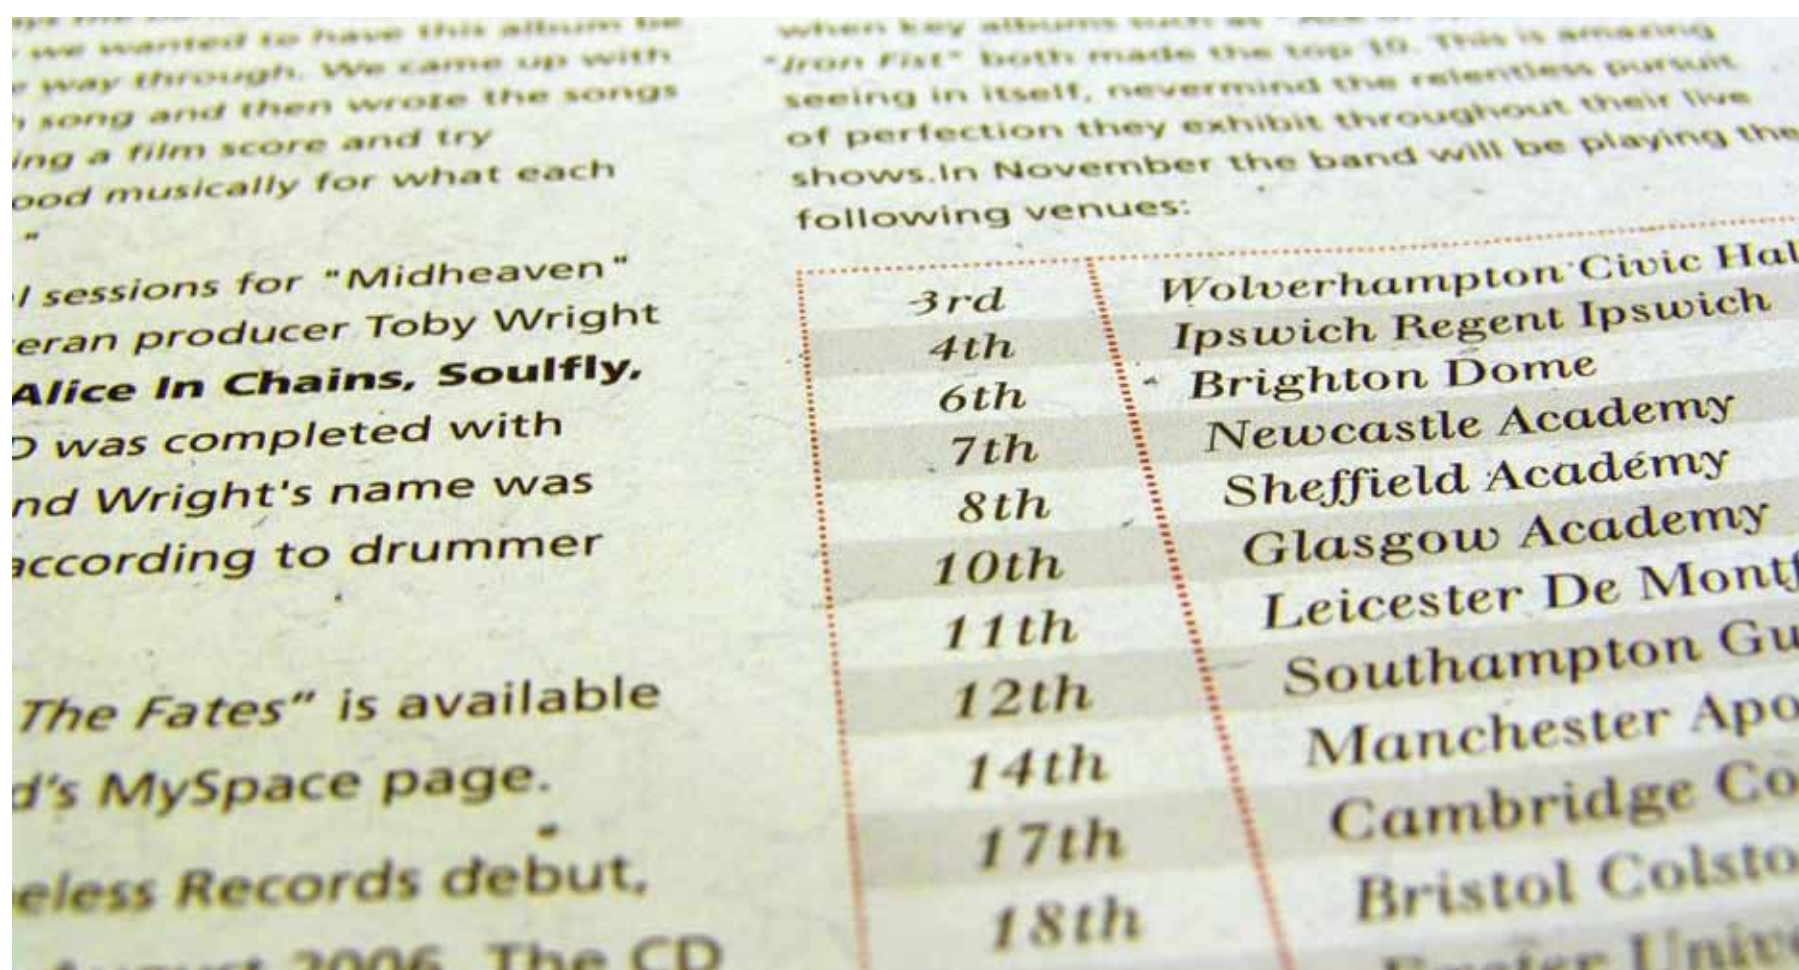 we wanted to have this album be
way through. We came up with
song and then wrote the songs
ing a film score and try
ood musically for what each
"
l sessions for "Midheaven"
eran producer Toby Wright
Alice In Chains, Soulfly,
D was completed with
nd Wright's name was
according to drummer
The Fates" is available
d's MySpace page.
eless Records debut,
August 2006. The CD
when key albums such as
"Iron Fist" both made the top 10. This is amazing
seeing in itself, nevermind the relentless pursuit
of perfection they exhibit throughout their live
shows.In November the band will be playing the
following venues:
3rd Wolverhampton Civic Hal
4th Ipswich Regent Ipswich
6th Brighton Dome
7th Newcastle Academy
8th Sheffield Academy
10th Glasgow Academy
11th Leicester De Montf
12th Southampton Gu
14th Manchester Apo
17th Cambridge Co
18th Bristol Colsto
Exeter Unive